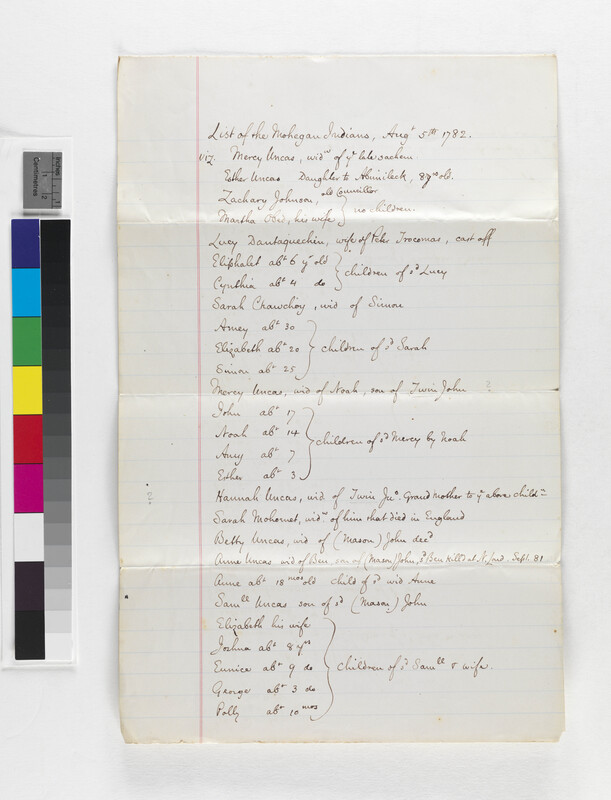 List of the Mohegan Indians, Augt 5th 1782.
viz. Mercy Uncas, widw of ye late sachem
Esther Uncas Daughter to Abimileck, 87 yrs old.
Zachary Johnson, old Councillor
Martha his wife } no children.
Lucy Dantaquechin, wife of Peter Trocomas, cast off
Eliphalet abt 6 yr old
Cynthia abt 4 do } children of sd Lucy
Sarah Chawchoy, wid of Simon
Amey abt 30
Elizabeth abt 20 } children of sd Sarah
Simon abt 25
Mercy Uncas, wid of Noah, son of Twin John ?
John abt 17
Noah abt 14 } children of sd Mercy by Noah
Amy abt 7
Esther abt 3
Hannah Uncas, wid. of Twin Jno. Grandmother to ye above childn
Sarah Mohomet, widw of him that died in England
Betty Uncas, wid of (Mason) John decd
Anne Uncas wid of Ben, son of (Mason) John, sd Ben killd at N. Lond. Sept. 81
Anne abt 18 mos old child of sd wid Anne
Samll Uncas son of sd (Mason) John
Elizabeth his wife
Joshua abt 8 yrs
Eunice abt 9 do } children of sd Samll & wife.
George abt 3 do
Polly abt 10 mos
Centimetres
Inches